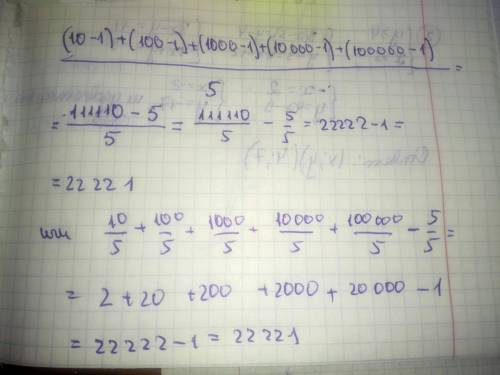 (10-1)+(100-1)+(1000-1)+(10000-1)+(100000-1)
/ 5 =
= 111110 - 5 / 5 = 111110 / 5 - 5 / 5 = 22222-1 =
= 22 221
или 10/5 + 100/5 + 1000/5 + 10000/5 + 100000/5 - 5/5 =
= 2 + 20 + 200 + 2000 + 20000 - 1
= 22222-1 = 22221